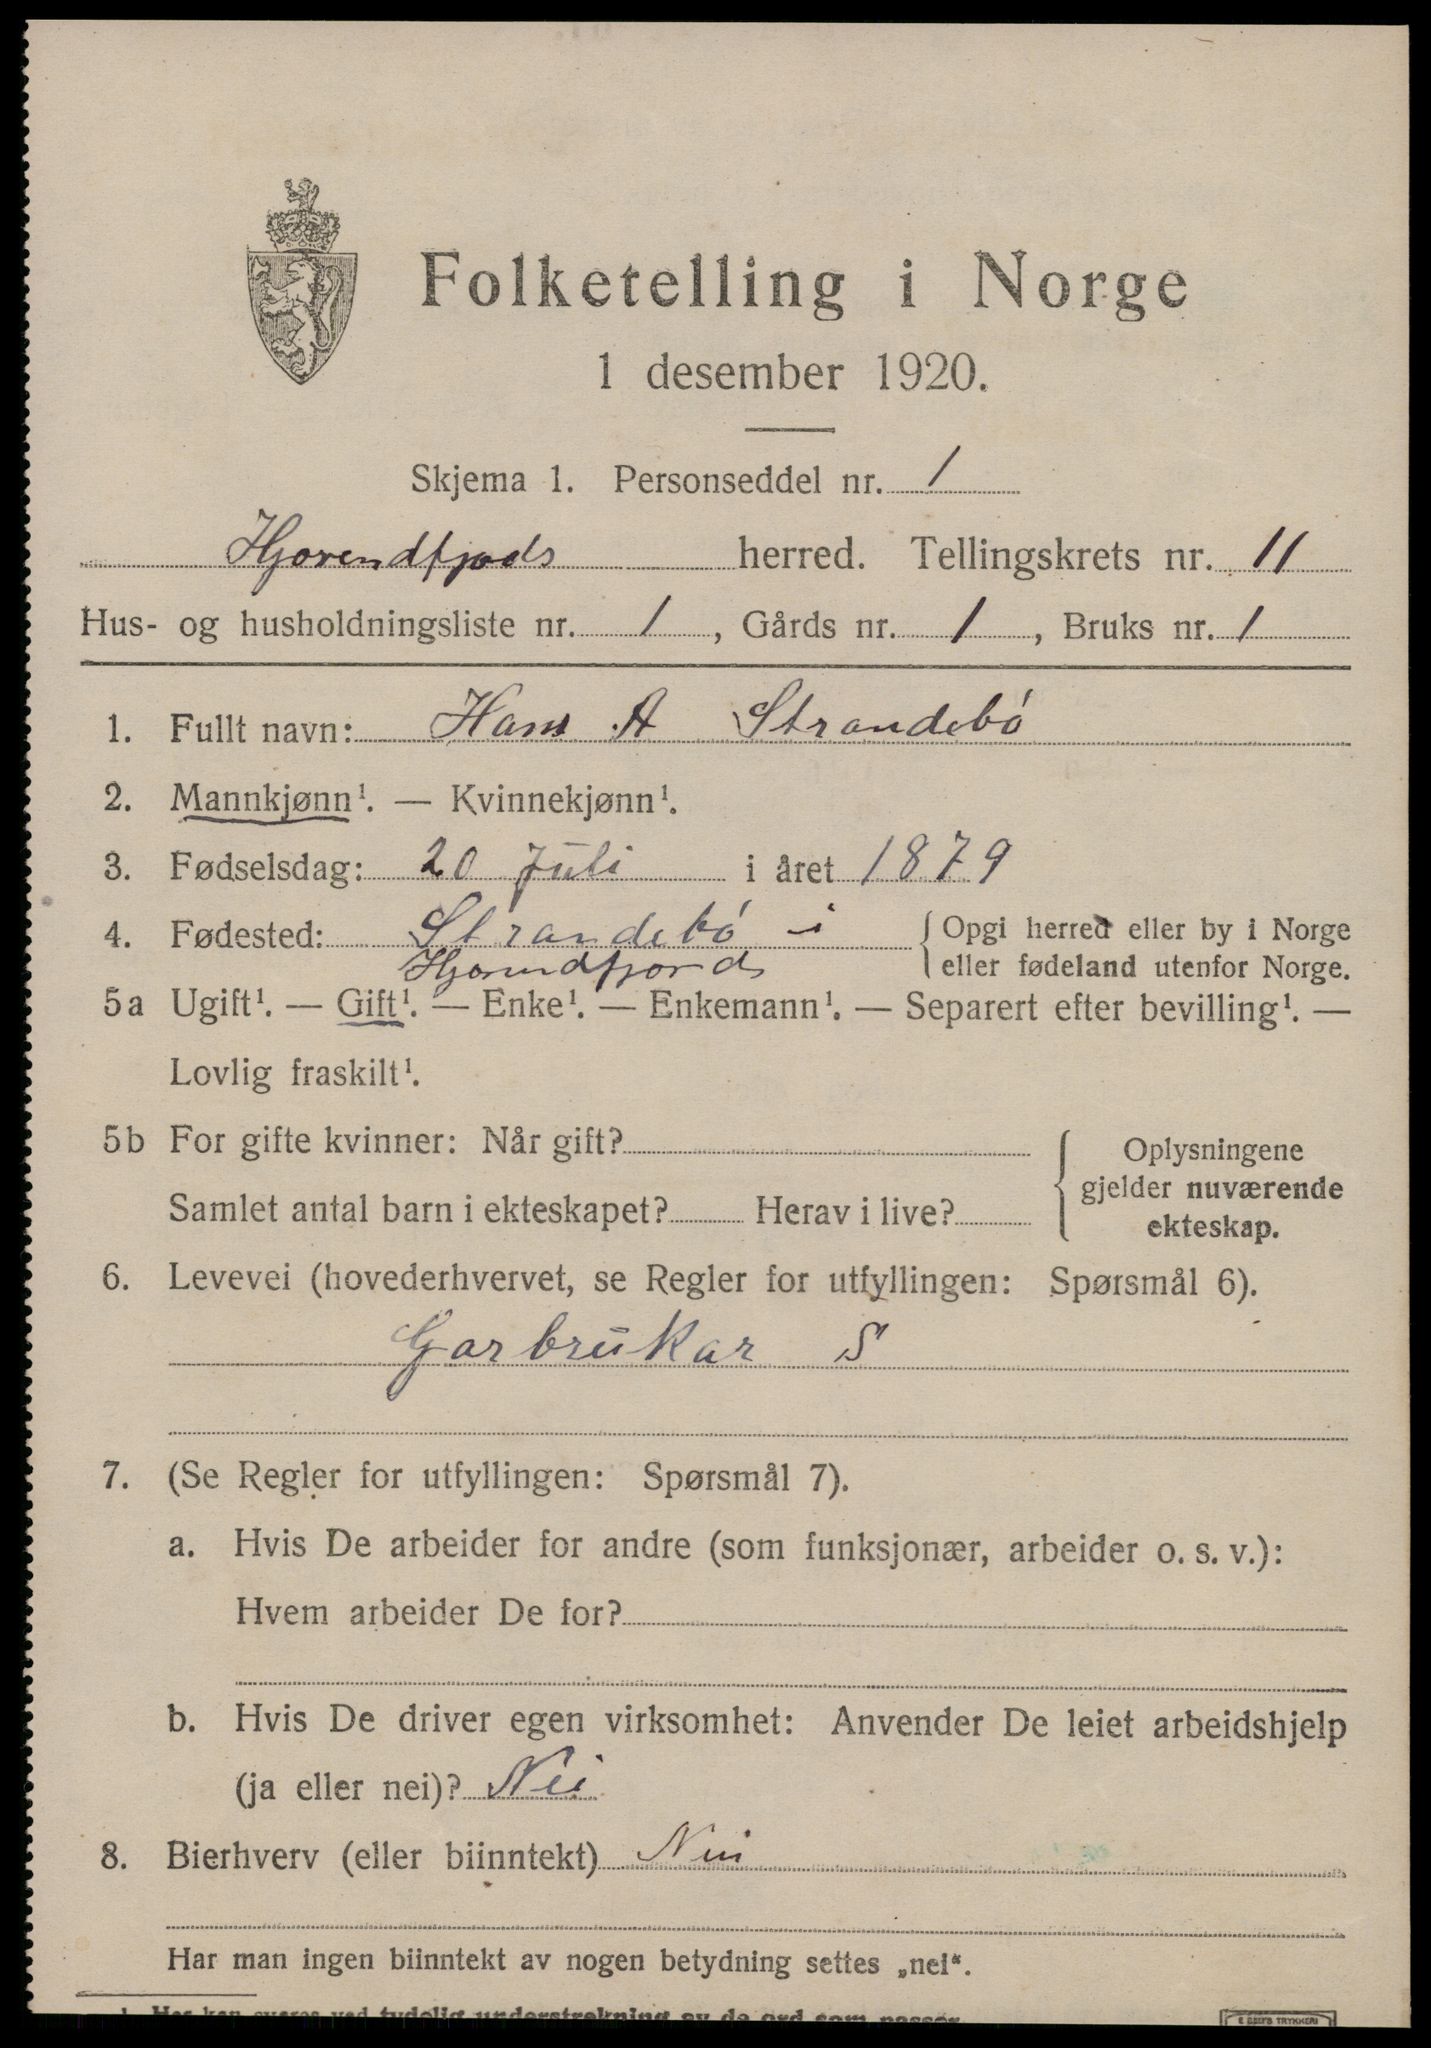 Folketelling i Norge
1 desember 1920.
Skjema 1. Personseddel nr. 1
Hjorendfjords herred. Tellingskrets nr. 11
Hus- og husholdningsliste nr. 1, Gårds nr. 1, Bruks nr. 1
1. Fullt navn: Hans A Strandebó
2. Mannkjønn¹. — Kvinnekjønn¹.
3. Fødselsdag: 20 Juli i året 1879
4. Fødested: Strandebó i { Opgi herred eller by i Norge
Hjorundfjord eller fødeland utenfor Norge.
5a Ugift¹. — Gift¹. — Enke¹. — Enkemann¹. — Separert efter bevilling¹. —
Lovlig fraskilt¹.
5b For gifte kvinner: Når gift? { Oplysningene
gjelder nuværende
Samlet antal barn i ekteskapet? Herav i live? ekteskap.
6. Levevei (hovederhvervet, se Regler for utfyllingen: Spørsmål 6).
Garbrukar S
7. (Se Regler for utfyllingen: Spørsmål 7).
a. Hvis De arbeider for andre (som funksjonær, arbeider o. s. v.):
Hvem arbeider De for?
b. Hvis De driver egen virksomhet: Anvender De leiet arbeidshjelp
(ja eller nei)? Nei
8. Bierhverv (eller biinntekt) Nei
Har man ingen biinntekt av nogen betydning settes „nei“.
¹ Her kan svares ved tydelig understrekning av de ord som passer.